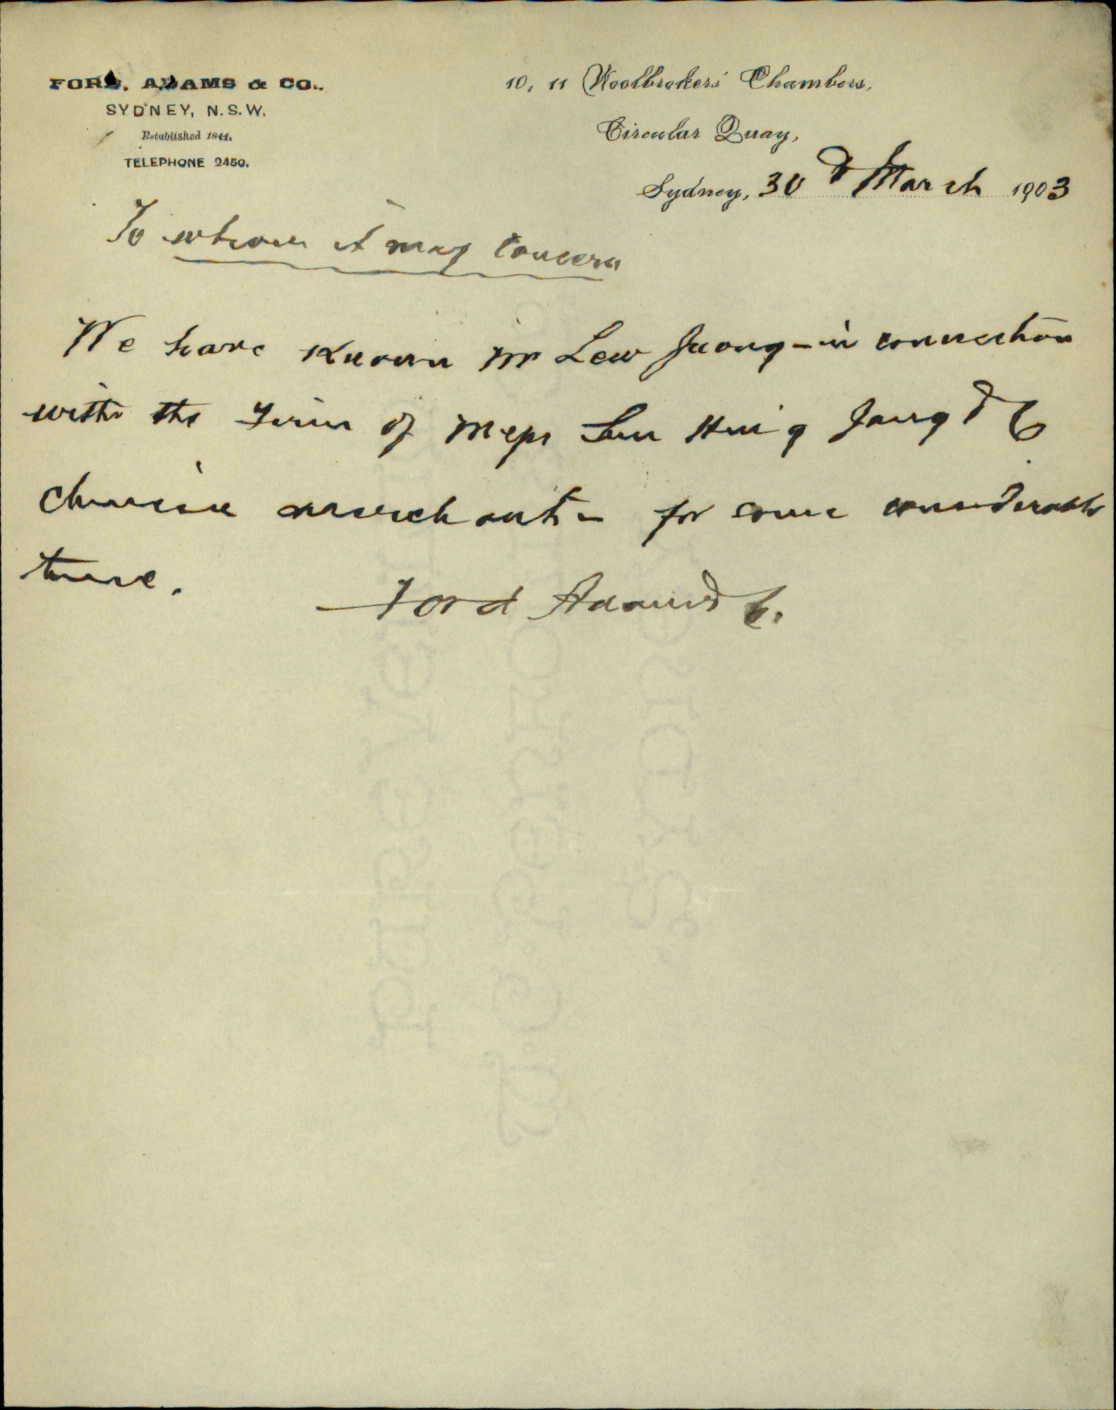 FORD, ADAMS & CO.,
SYDNEY, N.S.W.
Established 1844.
TELEPHONE 2450.
10, 11 Woolbrokers' Chambers,
Circular Quay,
Sydney, 30th March 1903
To whom it may Concern
We have known Mr Lew Juong - in connection
with the Firm of Messrs Sun Hing Jang & Co
chinese merchants - for some considerable
time.
Ford Adams & Co.